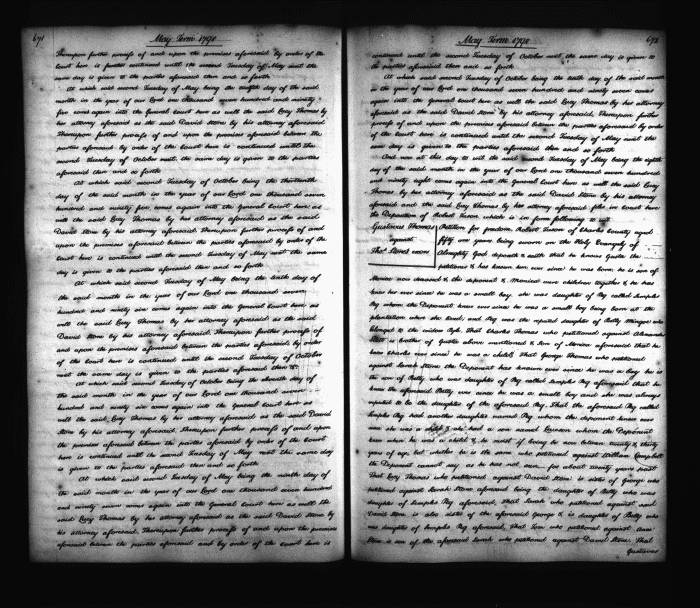 671
May Term 1798
Thereupon further process of and upon the premises aforesaid by order of the
court here is further continued until the second Tuesday of May next the
same day is given to the parties aforesaid then and so forth
At which said second Tuesday of May being the twelfth day of the said
month in the year of our Lord one thousand seven hundred and ninety
five comes again into the General Court here as well the said Lucy Thomas by
her attorney aforesaid as the said David Stone by his attorney aforesaid
Thereupon further process of and upon the premises aforesaid between the
parties aforesaid by order of the court here is continued until the
second Tuesday of October next the same day is given to the parties
aforesaid then and so forth
At which said second Tuesday of October being the thirteenth
day of the said month in the year of our Lord one thousand seven
hundred and ninety five comes again into the General Court here as
well the said Lucy Thomas by her attorney aforesaid as the said
David Stone by his attorney aforesaid Thereupon further process of and
upon the premises aforesaid between the parties aforesaid by order of the
court here is continued until the second Tuesday of May next the same
day is given to the parties aforesaid then and so forth
At which said second Tuesday of May being the tenth day of
the said month in the year of our Lord one thousand seven
hundred and ninety six comes again into the General Court here as
well the said Lucy Thomas by her attorney aforesaid as the said
David Stone by his attorney aforesaid Thereupon further process of
and upon the premises aforesaid between the parties aforesaid by order
of the court here is continued until the second Tuesday of October
next the same day is given to the parties aforesaid then &c
At which said second Tuesday of October being the eleventh day of
the said month in the year of our Lord one thousand seven
hundred and ninety six comes again into the General Court here as
well the said Lucy Thomas by her attorney aforesaid as the said David
Stone by his attorney aforesaid Thereupon further process of and upon
the premises aforesaid between the parties aforesaid by order of the court
here is continued until the second Tuesday of May next the same day
is given to the parties aforesaid then and so forth
At which said second Tuesday of May being the ninth day of
the said month in the year of our Lord one thousand seven hundred
and ninety seven comes again into the General Court here as well the
said Lucy Thomas by her attorney aforesaid as the said David Stone by
his attorney aforesaid Thereupon further process of and upon the premises
aforesaid between the parties aforesaid and by order of the court here is
672
May Term 1798
continued until the second Tuesday of October next the same day is given to
the parties aforesaid then and so forth
At which said second Tuesday of October being the tenth day of the said month
in the year of our Lord one thousand seven hundred and ninety seven comes
again into the General Court here as well the said Lucy Thomas by her attorney
aforesaid as the said David Stone by his attorney aforesaid, Thereupon further
process of and upon the premises aforesaid between the parties aforesaid by order
of the court here is continued until the second Tuesday of May next the
same day is given to the parties aforesaid then and so forth
And now at this day to wit the said second Tuesday of May being the eighth
day of the said month in the year of our Lord one thousand seven hundred
and ninety eight comes again into the General Court here as well the said Lucy
Thomas by her attorney aforesaid as the said David Stone by his attorney
aforesaid and the said Lucy Thomas by her attorney aforesaid files in Court here
the Deposition of Robert Tucson which is in form following to wit
Gustavus Thomas
against
Thos. Stone's exors
Petition for freedom. Robert Tucson of Charles County aged
fifty one years being sworn on the Holy Evangely of
Almighty God deposeth & saith that he knows Gusta the
petitioner & has known him ever since he was born he is son of
Monica now deceased & this deponent & Monica were children together & he has
known her ever since he was a small boy, she was daughter of Peg called Semphs
Peg whom the Deponent knew ever since he was a small boy being born at the
plantation where she lived, and Peg was the reputed daughter of Betty Mingo who
belonged to the widow Pye. That Charles Thomas who petitioned against
Stone is brother of Gusta above mentioned & son of Monica aforesaid that he
knew Charles ever since he was a child, that George Thomas who petitioned
against Sarah Stone the Deponent has known ever since he was a boy he is
the son of Patty who was daughter of Peg called Semphs Peg aforesaid that he
knew the aforesaid Patty ever since he was a small boy and she was always
reputed to be the daughter of the aforesaid Peg. That the aforesaid Peg called
Semphs Peg had another daughter named Peg whom the deponent knew ever
since she was a child & she had a son named Lawson whom the Deponent
knew when he was a child & he must if living be now between twenty & thirty
years of age, but whether he is the same who petitioned against William Campbell
the Deponent cannot say as he has not seen for about twenty years past
That Lucy Thomas who petitioned against David Stone is sister of George who
petitioned against Sarah Stone aforesaid being the daughter of Patty who was
daughter of Semphs Peg aforesaid, That Sarah who petitioned against said
David Stone is also sister of the aforesaid George & is daughter of Patty who
was daughter of Semphs Peg aforesaid, That Tom who petitioned against Sam
Stone is son of the aforesaid Sarah who petitioned against David Stone. That
Gustavus